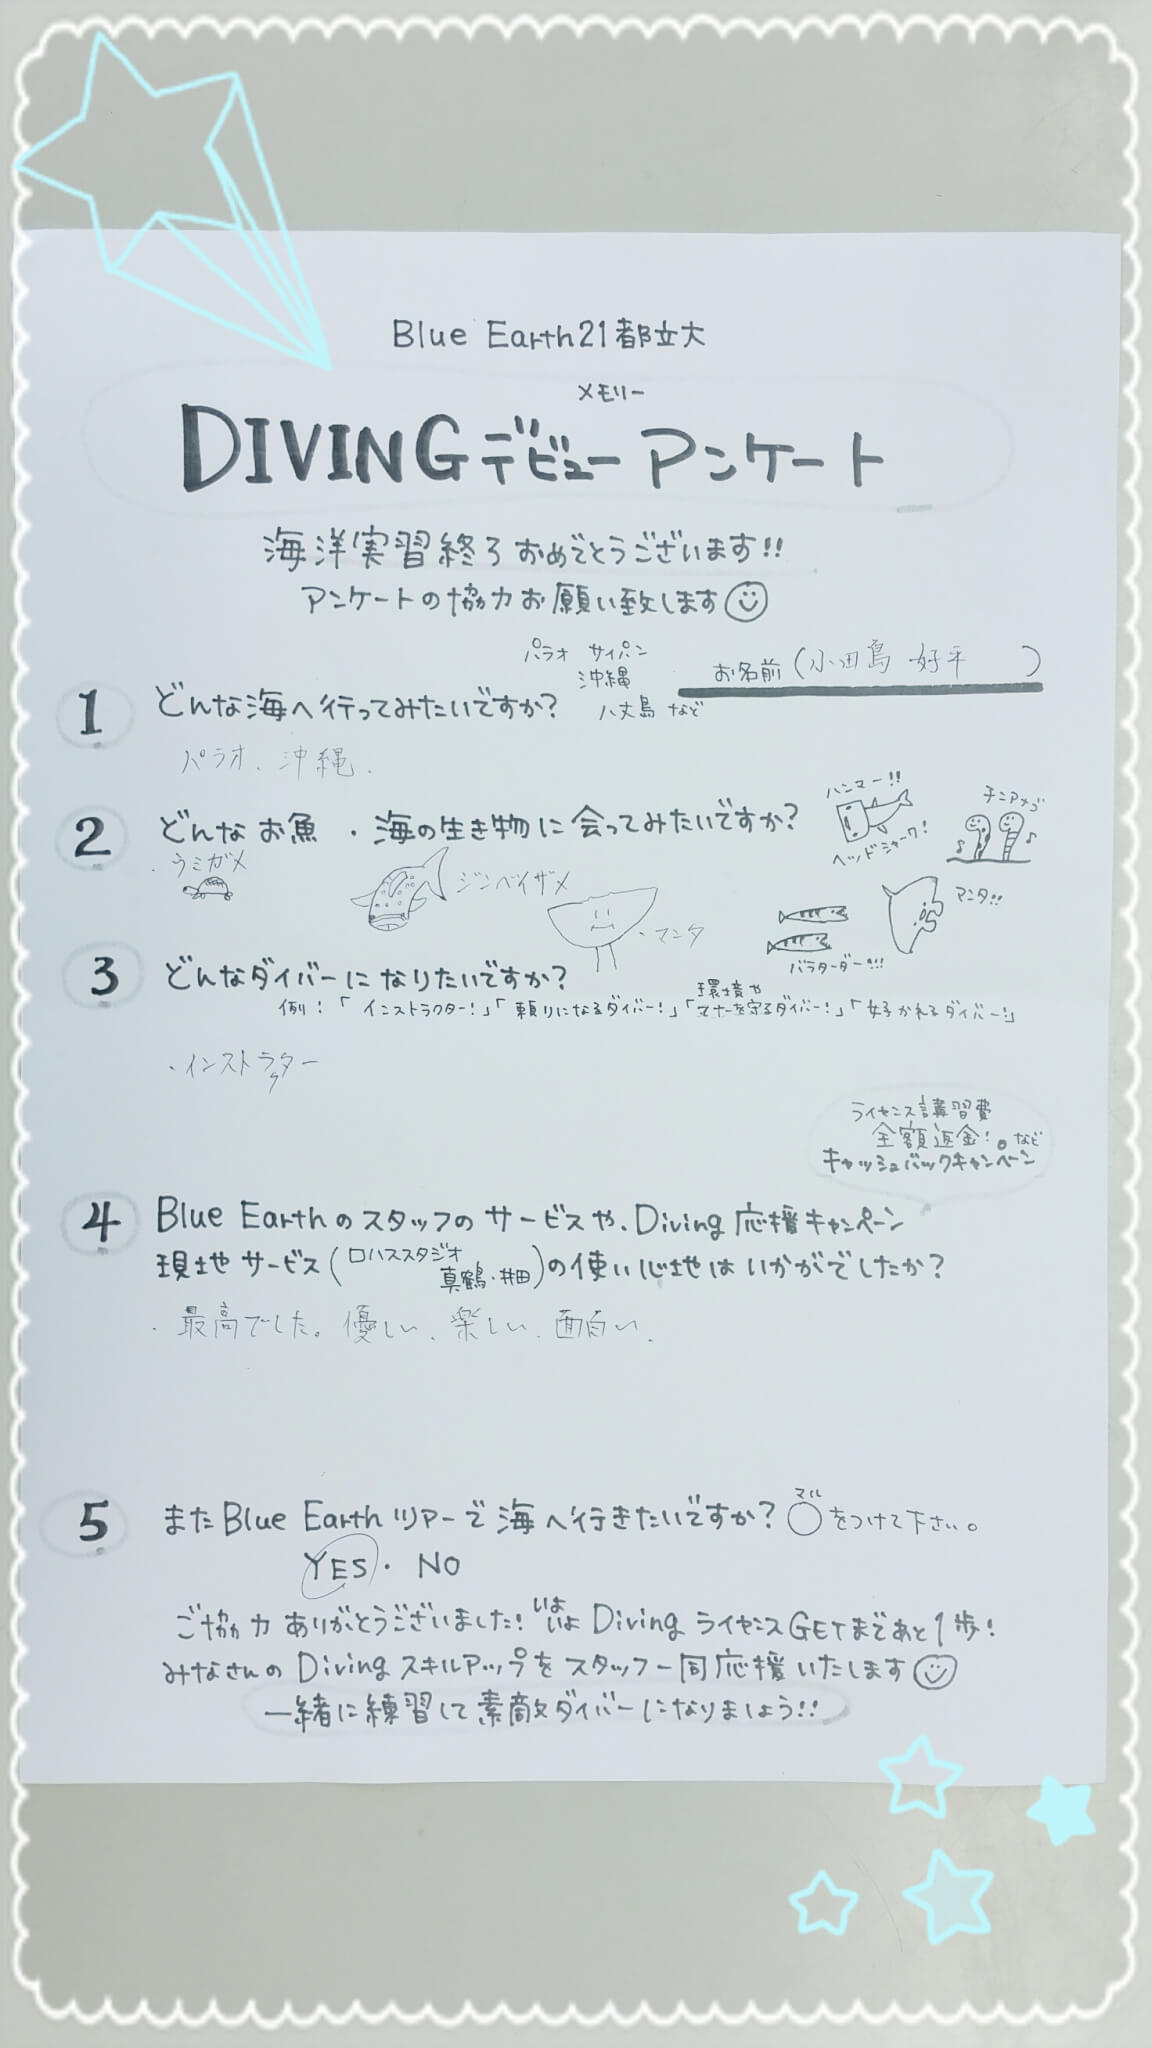 Blue Earth21都立大
メモリー
DIVINGデビューアンケート
海洋実習終了おめでとうございます!!
アンケートの協力お願い致します
お名前(小田島 好平 )
パラオ サイパン
沖縄
八丈島 など
1 どんな海へ行ってみたいですか?
パラオ、沖縄、
2 どんなお魚・海の生き物に会ってみたいですか?
ハンマー!!
ヘッドシャーク!
チンアナゴ
・ウミガメ
ジンベイザメ
・マンタ
バラクーダー!!!
マンタ!!
3 どんなダイバーになりたいですか?
例!「インストラクター!」「頼りになるダイバー!」「環境やマナーを守るダイバー!」「好かれるダイバー!」
・インストラクター
ライセンス講習費
全額返金!。など
キャッシュバックキャンペーン
4 Blue Earthのスタッフのサービスや、Diving応援キャンペーン
現地やサービス(ロハススタジオ
真鶴・井田)の使い心地はいかがでしたか?
・最高でした。優しい、楽しい、面白い、
5 またBlue Earthツアーで海へ行きたいですか?○マルをつけて下さい。
YES・NO
ご協力ありがとうございました!いよいよDivingライセンスGETまであと1歩!
みなさんのDivingスキルアップをスタッフ一同応援いたします
一緒に練習して素敵ダイバーになりましょう!!